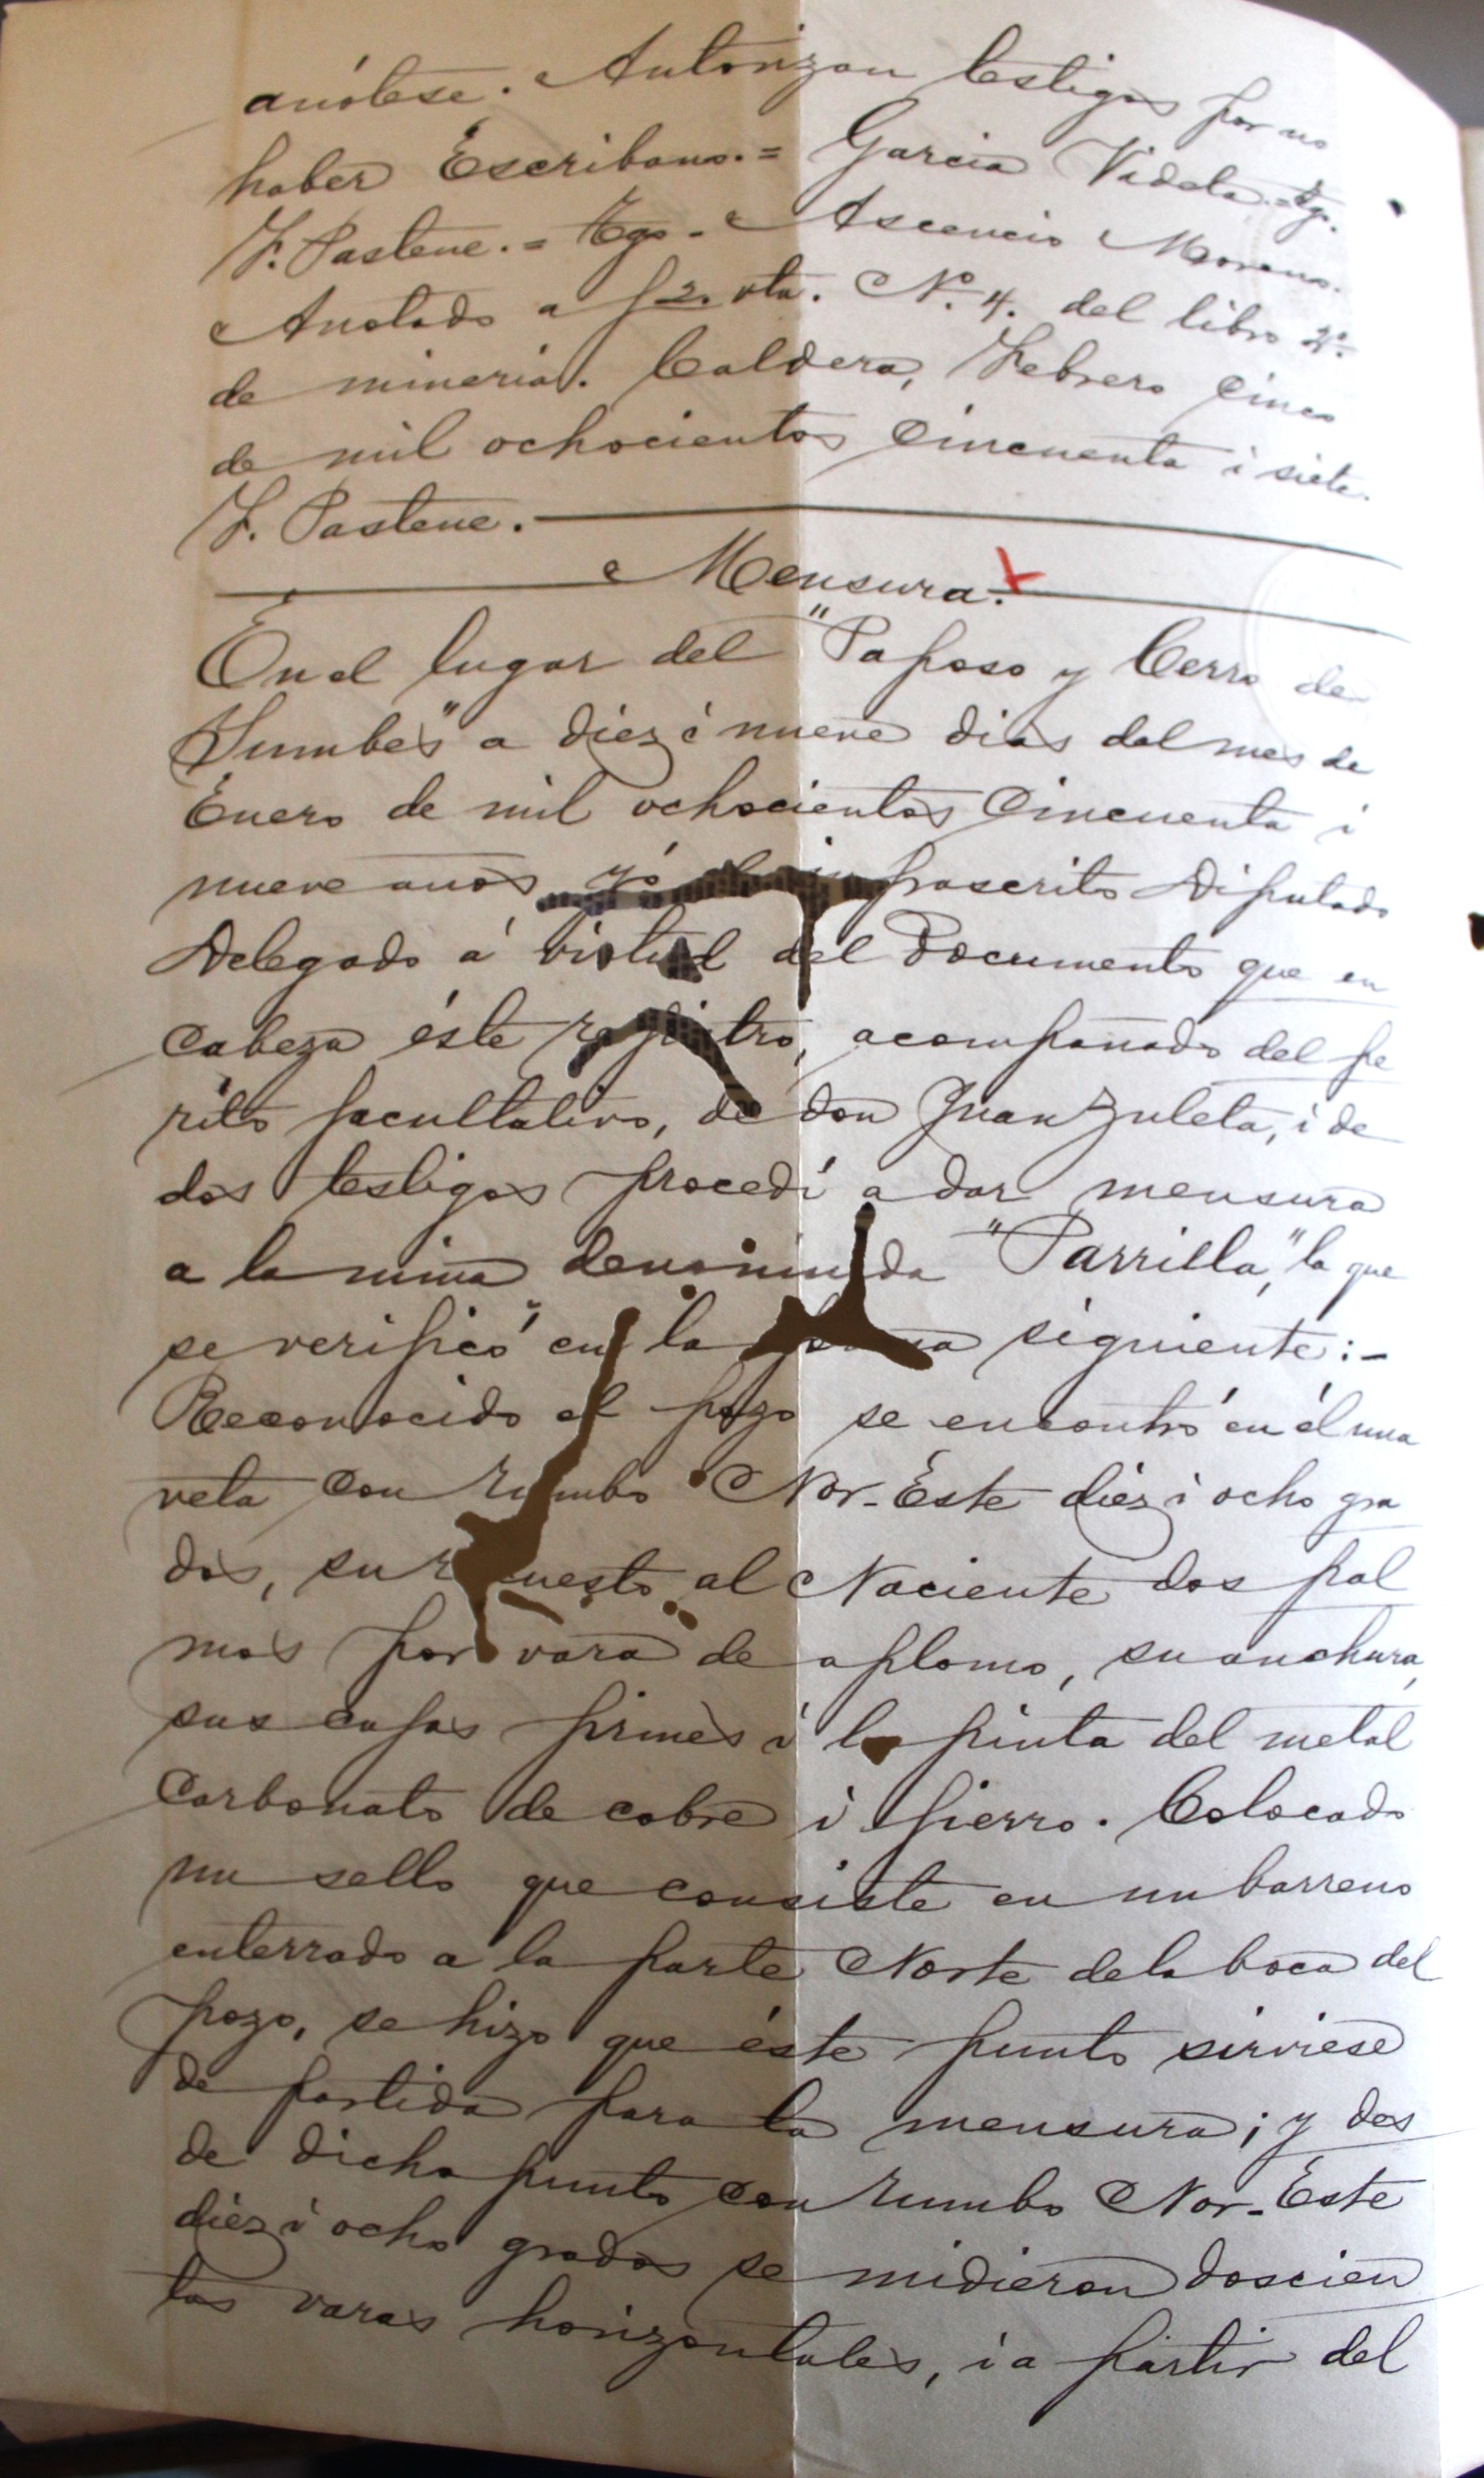 anótese. Autorizan testigos por no
haber Escribano.= Garcia Videla.=Tgo.
F. Pastene.= Tgo- Ascencio Moreno.
Anotado a f 2. vta. Nº. 4. del libro 2º.
de mineria. Caldera, Febrero Cinco
de mil ochocientos Cincuenta i siete.
F. Pastene.
Mensura.
En el lugar del "Paposo y Cerro de
Yumbes" a diez i nueve dias del mes de
Enero de mil ochocientos Cincuenta i
nueve anos yó infrascrito Diputado
Delegado á virtud del Documento que en
Cabeza éste rejistro, acompañado del pe
rito facultativo, de don Juan Zuleta, i de
dos testigos procedí a dar mensura
a la mina denominada "Parrilla," la que
se verificó en la forma siguiente:-
Reconocido el pozo se encontró en él una
veta con rumbo Nor-Este diez i ocho gra
dos, su recuesto al Naciente dos pal
mos por vara de aplomo, su anchura,
sus cajas firmes i la pinta del metal
Carbonato de cobre i fierro. Colocado
un sello que consiste en un barreno
enterrado a la parte Norte de la boca del
pozo, se hizo que éste punto sirviese
de partida para la mensura; y des
de dicho punto con rumbo Nor-Este
diez i ocho grados se midieron doscien
tas varas horizontales, i a partir del